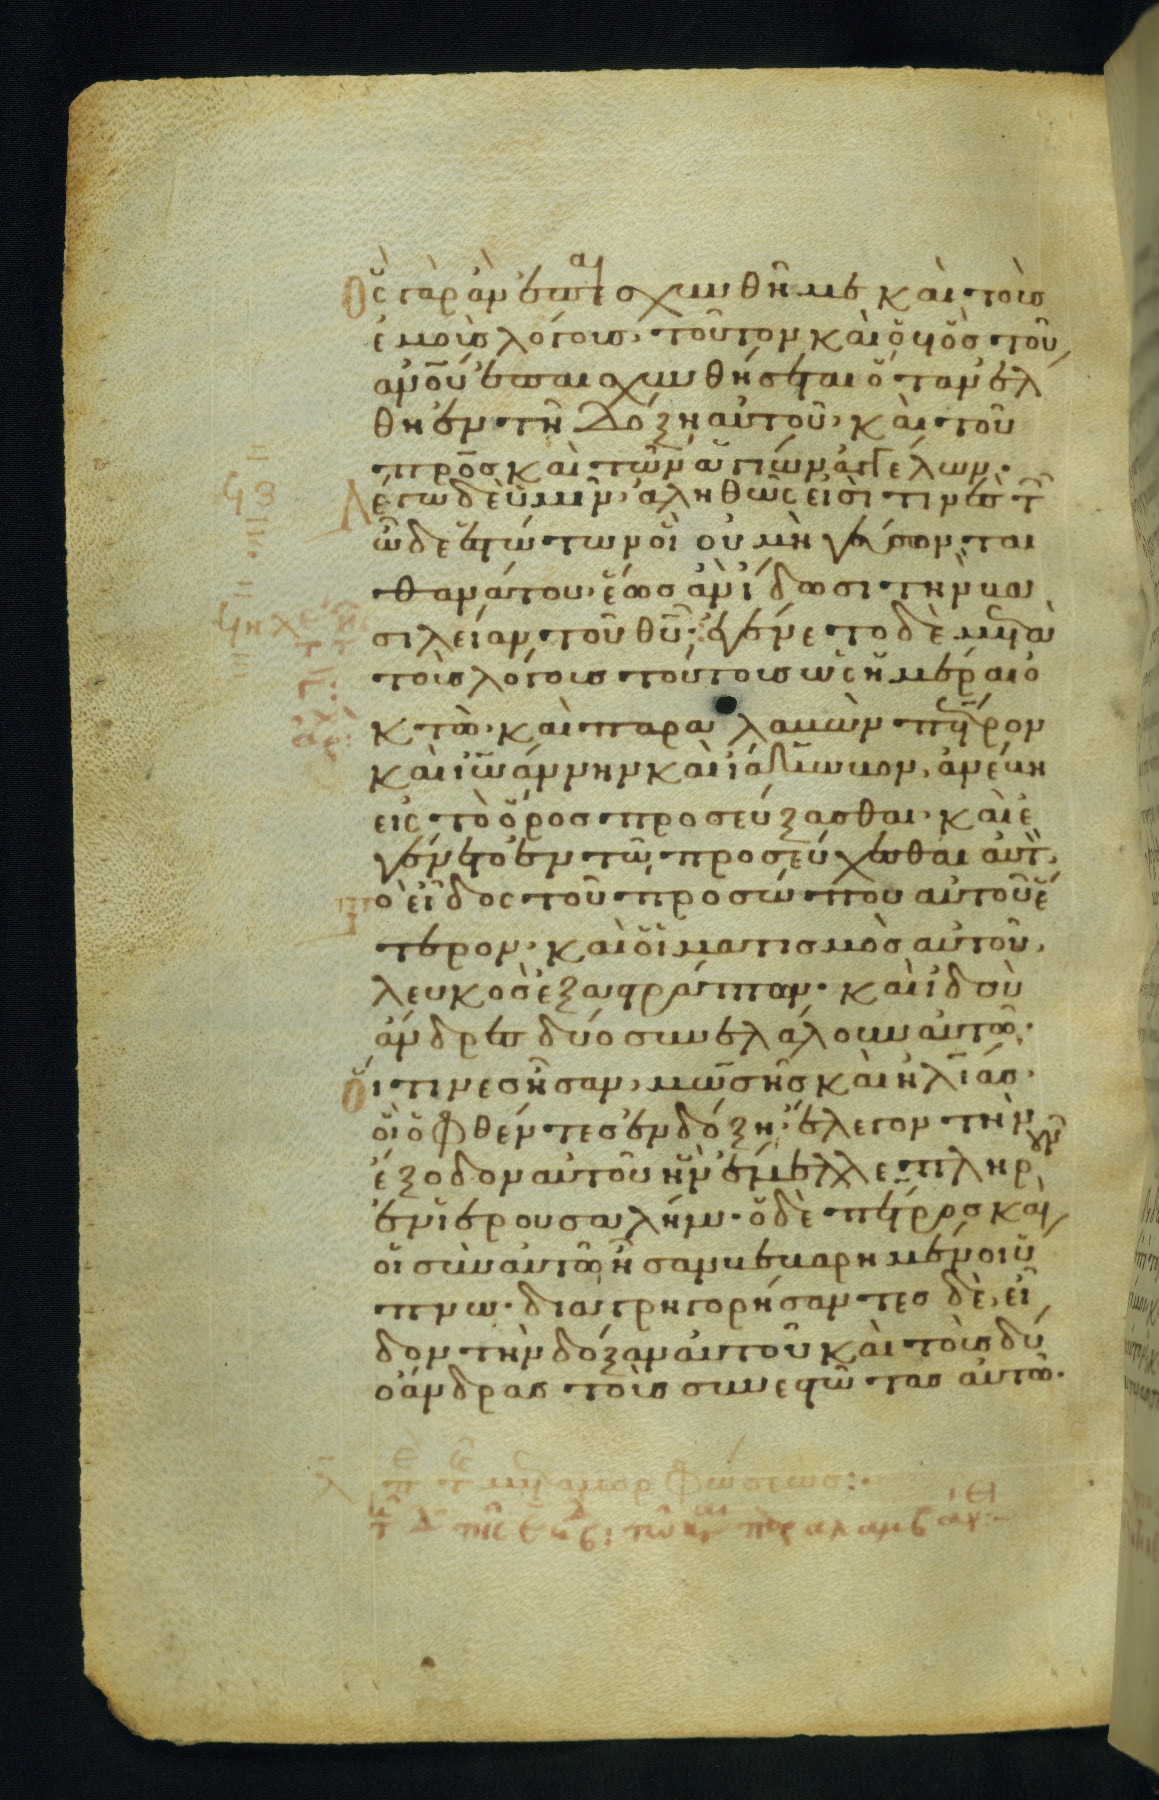 Ὃς γὰρ ἂν ἐπαισχυνθῆ με καὶ τοὺς
ἐμοὺς λόγους, τοῦτον καὶ ὁ υἱὸς τοῦ
ανου ἐπαισχυνθήσεται ὅταν ἔλ
θη ἐν τῆ δόξη αὐτοῦ, καὶ τοῦ
προς καὶ τῶν ἁγίων ἀγγέλων.
Λέγω δὲ ὑμῖν ἀληθῶς εἰσί τινες τ
ὧδε ἑστώτων οἳ οὐ μὴ γεύσονται
θανάτου, ἕως ἂν ἴδωσι τὴν βα
σιλείαν τοῦ θυ. ἐγένετο δὲ μετὰ
τοὺς λόγους τούτους ὡς ἡμέραι ὀ
κτώ. καὶ παραλαβὼν πέτρον
καὶ ἰωάννην καὶ ἰάκωβον, ἀνέβη
εἰς τὸ ὄρος προσεύξασθαι. καὶ ἐ
γένετο ἐν τῶ προσεύχεσθαι αὐτ
ὸ εἶδος τοῦ προσώπου αὐτοῦ ἕ
τερον. καὶ ὁ ἱματισμὸς αὐτοῦ,
λευκὸς ἐξαστράπτων. καὶ ἰδοὺ
ἄνδρες δύο συνελάλουν αὐτῶ.
Οἵτινες ἦσαν, μωσῆς καὶ ἠλίας.
οἳ ὀφθέντες ἐν δόξη, ἔλεγον τὴν
ἔξοδον αὐτοῦ ἣν ἔμελλε πληρουν
ἐν ἱερουσαλήμ. ὁ δὲ πέτρος καὶ
οἱ σὺν αὐτῶ ἦσαν βεβαρημένοι ὕ
πνω. διαγρηγορήσαντες δὲ, εἶ
δον τὴν δόξαν αὐτοῦ καὶ τοὺς δύ
ο ἄνδρας τοὺς συνεστῶτας αὐτῶ.